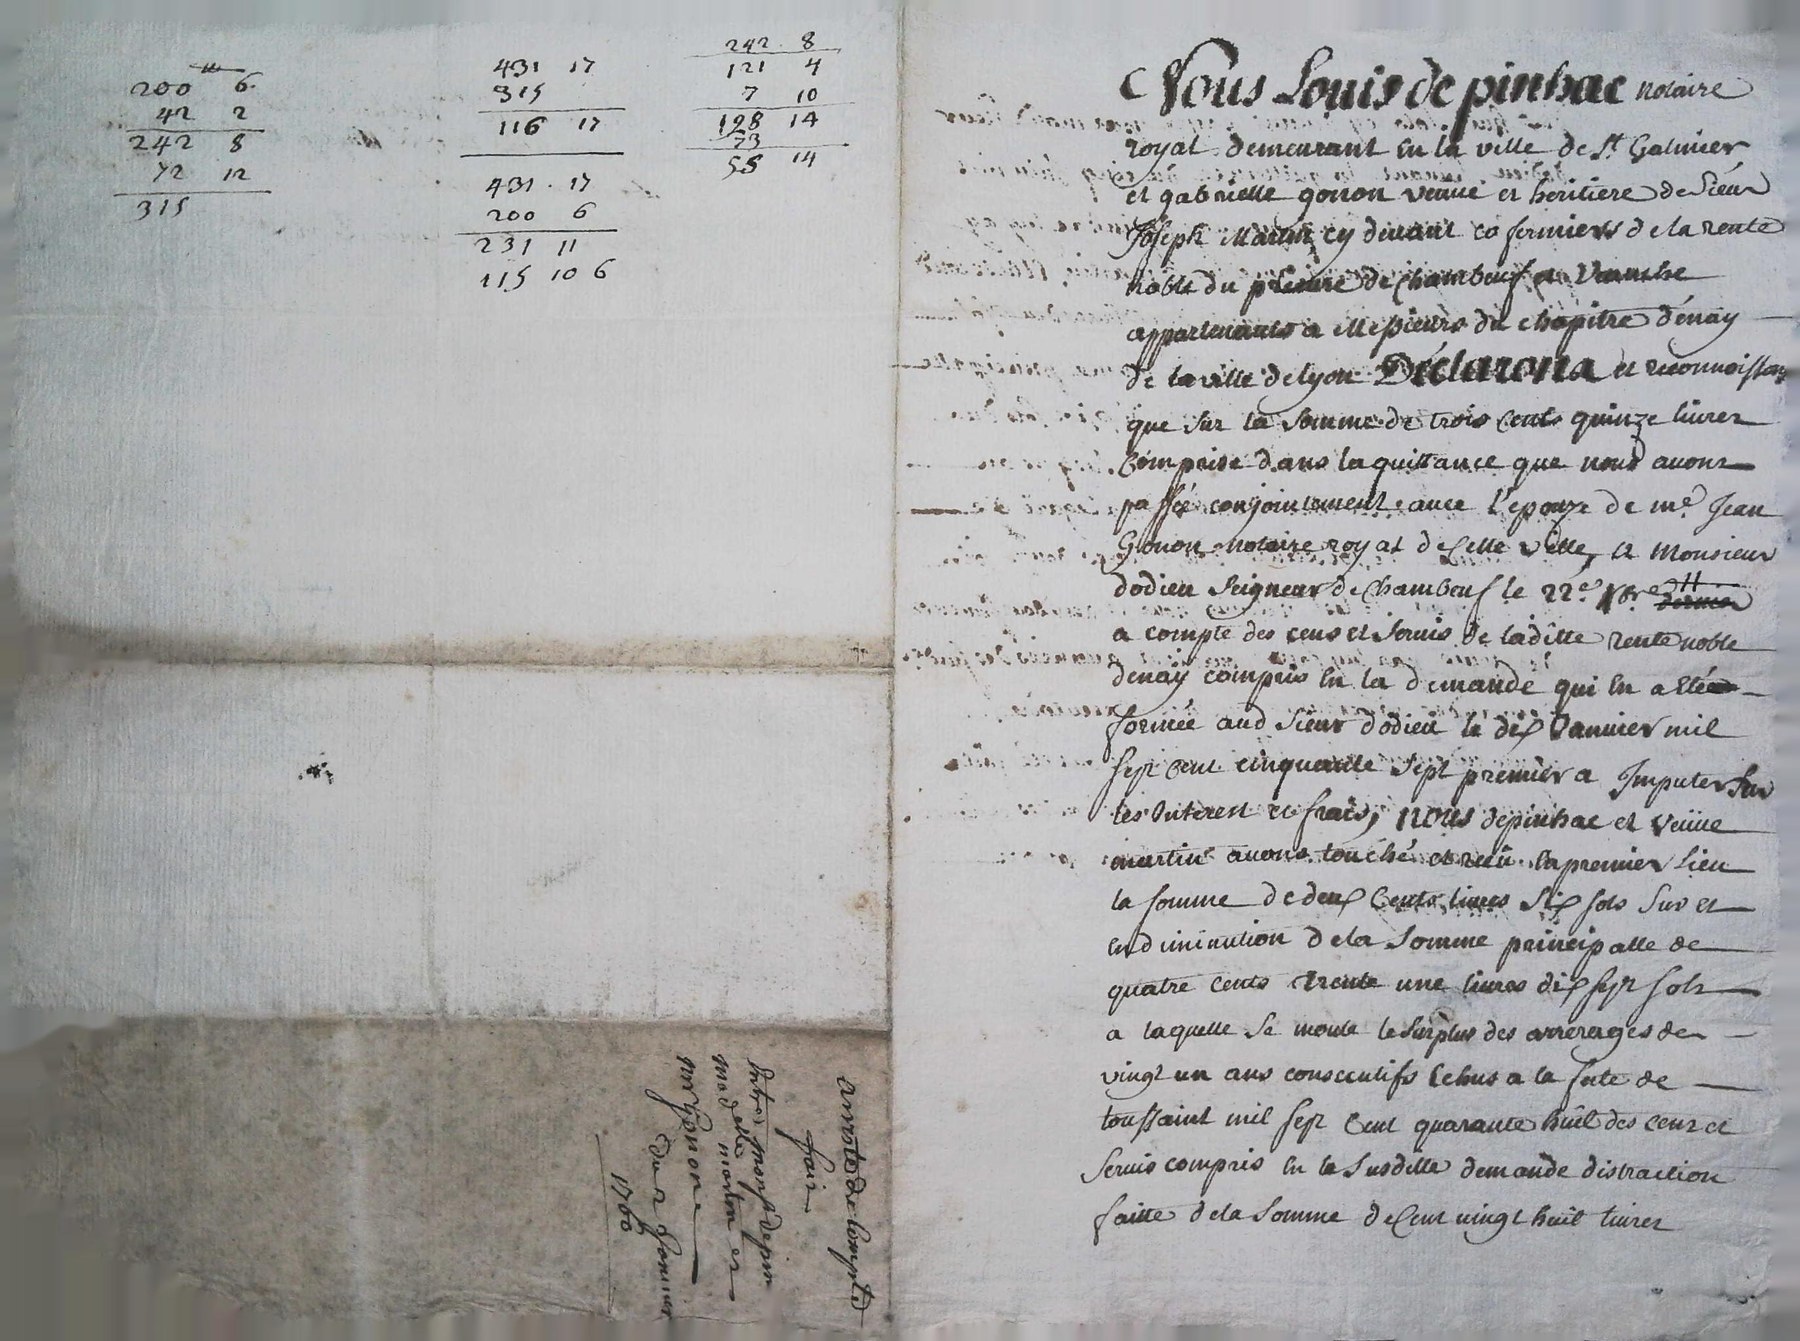 200 6
42 2
242 8
72 12
315
431 17
315
116 17
431 . 17
200 6
231 11
115 10 6
242 . 8
121 4
7 10
128 14
73
55 14
arresté de compte
fait
entre monsr depin
mad elle martin et
mr gonon
du 2 janvier
1760
Nous Louis de pinhac notaire
royal demeurant en la ville de St Galmier
et gabrielle gonon veuve et heritiere de Sieur
Joseph Martin cy devant co fermiers de la rente
noble du prieuré de Chambeuf et
appartenants a Messieurs du chapitre d'énay
de la ville de lyon Déclarons et reconnoissons
que sur la somme de trois cents quinze livres
comprise dans la quittance que nous avons
passé conjointement avec l'epouze de me Jean
Gonon notaire royal de cette ville, a Monsieur
dodieu seigneur de Chambeuf le 22e
a compte des cens et servis de laditte rente noble
denay compris en la demande qui en a eté
formée aud sieur dodieu le dix Janvier mil
sept cent cinquante sept premier a Imputer sur
les Interest et frais, nous depinhac et veuve
martin avons touché et reçu en premier lieu
la somme de deux cents livres six sols sur et
en diminution de la somme principalle de
quatre cents trente une livres dix sept sols
a laquelle se monte le surplus des arrerages de
vingt un ans consecutifs echus a la fete de
toussaint mil sept cent quarante huit des cens et
servis compris en la susditte demande distraction
faitte de la somme de cent vingt huit livres